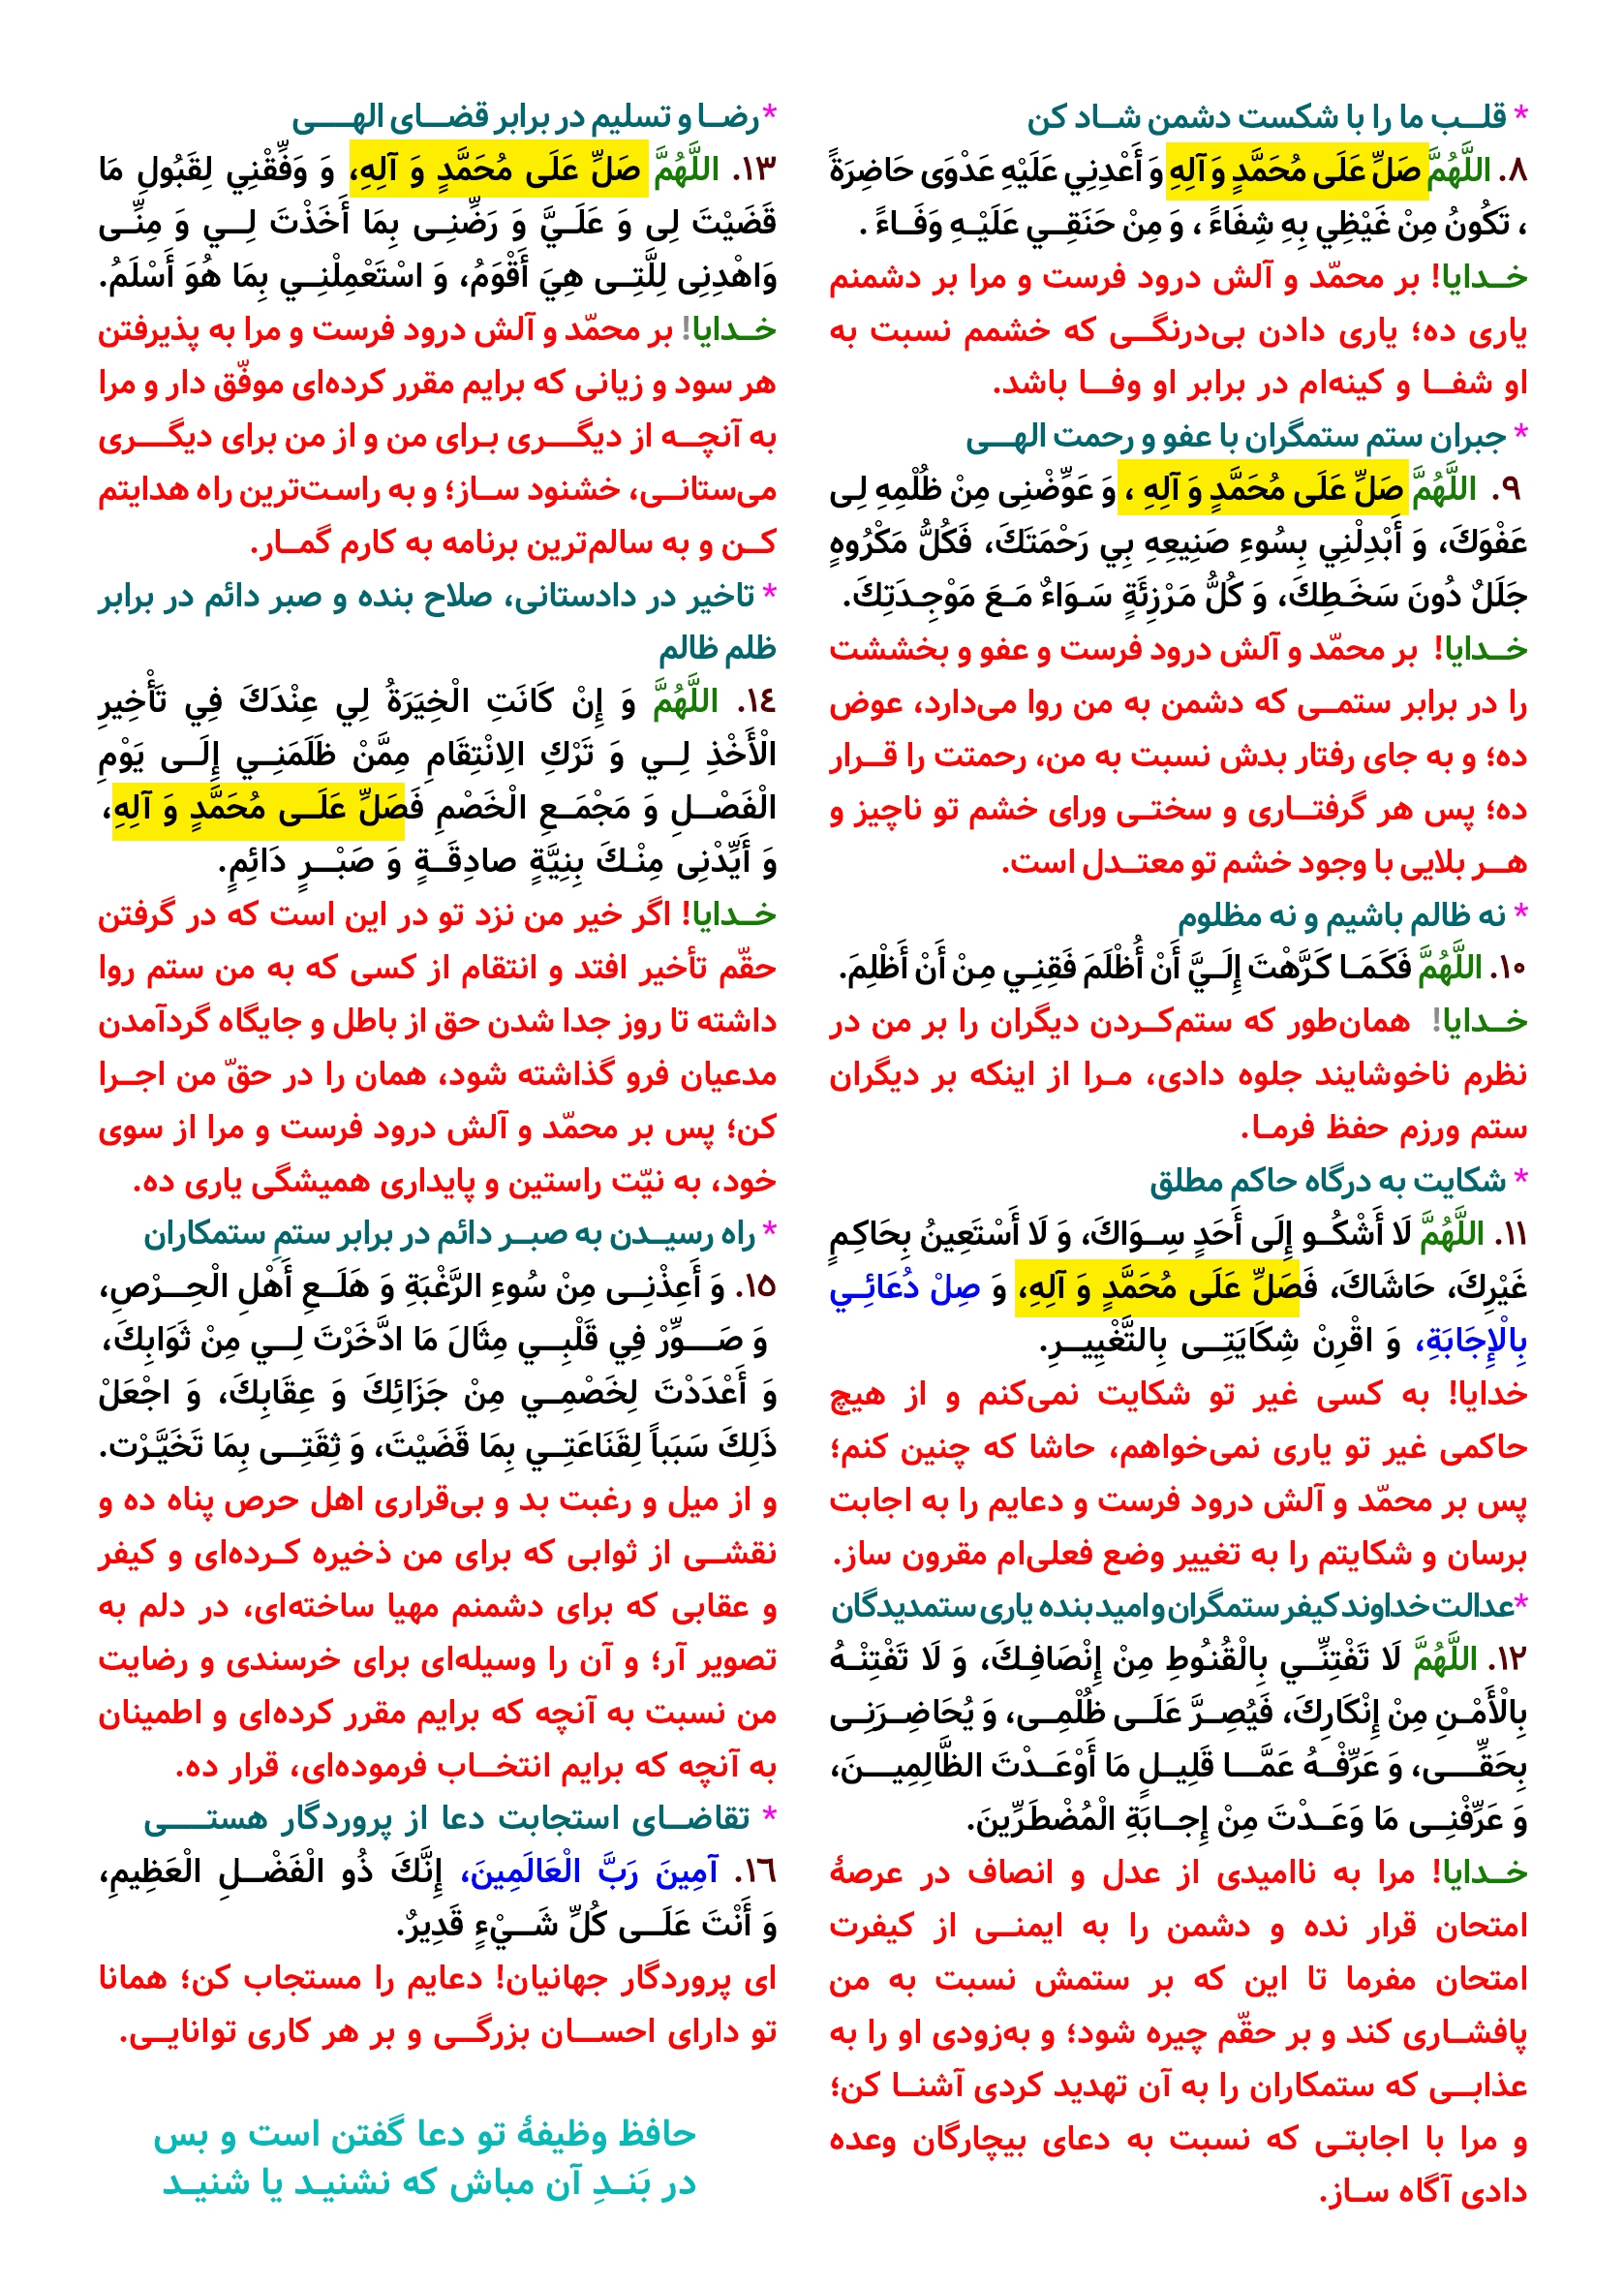 * قلب ما را با شکست دشمن شاد کن
٨. اللَّهُمَّ صَلِّ عَلَى مُحَمَّدٍ وَ آلِهِ وَ أَعْدِنِي عَلَيْهِ عَدْوَى حَاضِرَةً
، تَكُونُ مِنْ غَيْظِي بِهِ شِفَاءً ، وَ مِنْ حَنَقِي عَلَيْهِ وَفَاءً .
خدایا! بر محمّد و آلش درود فرست و مرا بر دشمنم
یاری ده؛ یاری دادن بی‌درنگی که خشمم نسبت به
او شفا و کینه‌ام در برابر او وفا باشد.
* جبران ستم ستمگران با عفو و رحمت الهی
٩. اللَّهُمَّ صَلِّ عَلَى مُحَمَّدٍ وَ آلِهِ ، وَ عَوِّضْنِى مِنْ ظُلْمِهِ لِى
عَفْوَكَ، وَ أَبْدِلْنِي بِسُوءِ صَنِيعِهِ بِي رَحْمَتَكَ، فَكُلُّ مَكْرُوهٍ
جَلَلٌ دُونَ سَخَطِكَ، وَ كُلُّ مَرْزِئَةٍ سَوَاءٌ مَعَ مَوْجِدَتِكَ.
خدایا! بر محمّد و آلش درود فرست و عفو و بخششت
را در برابر ستمی که دشمن به من روا می‌دارد، عوض
ده؛ و به جای رفتار بدش نسبت به من، رحمتت را قرار
ده؛ پس هر گرفتاری و سختی ورای خشم تو ناچیز و
هر بلایی با وجود خشم تو معتدل است.
* نه ظالم باشیم و نه مظلوم
١٠. اللَّهُمَّ فَكَمَا كَرَّهْتَ إِلَيَّ أَنْ أُظْلَمَ فَقِنِي مِنْ أَنْ أَظْلِمَ.
خدایا! همان‌طور که ستم‌کردن دیگران را بر من در
نظرم ناخوشایند جلوه دادی، مرا از اینکه بر دیگران
ستم ورزم حفظ فرما.
* شکایت به درگاه حاکم مطلق
١١. اللَّهُمَّ لَا أَشْكُو إِلَى أَحَدٍ سِوَاكَ، وَ لَا أَسْتَعِينُ بِحَاكِمٍ
غَيْرِكَ، حَاشَاكَ، فَصَلِّ عَلَى مُحَمَّدٍ وَ آلِهِ، وَ صِلْ دُعَائِي
بِالْإِجَابَةِ، وَ اقْرِنْ شِكَايَتِى بِالتَّغْيِيرِ.
خدایا! به کسی غیر تو شکایت نمی‌کنم و از هیچ
حاکمی غیر تو یاری نمی‌خواهم، حاشا که چنین کنم؛
پس بر محمّد و آلش درود فرست و دعایم را به اجابت
برسان و شکایتم را به تغییر وضع فعلی‌ام مقرون ساز.
*عدالت خداوند کیفر ستمگران و امید بنده یاری ستمدیدگان
١٢. اللَّهُمَّ لَا تَفْتِنِّي بِالْقُنُوطِ مِنْ إِنْصَافِكَ، وَ لَا تَفْتِنْهُ
بِالْأَمْنِ مِنْ إِنْكَارِكَ، فَيُصِرَّ عَلَى ظُلْمِى، وَ يُحَاضِرَنِى
بِحَقِّى، وَ عَرِّفْهُ عَمَّا قَلِيلٍ مَا أَوْعَدْتَ الظَّالِمِينَ،
وَ عَرِّفْنِى مَا وَعَدْتَ مِنْ إِجابَةِ الْمُضْطَرِّينَ.
خدایا! مرا به ناامیدی از عدل و انصاف در عرصهٔ
امتحان قرار نده و دشمن را به ایمنی از کیفرت
امتحان مفرما تا این که بر ستمش نسبت به من
پافشاری کند و بر حقّم چیره شود؛ و به‌زودی او را به
عذابی که ستمکاران را به آن تهدید کردی آشنا کن؛
و مرا با اجابتی که نسبت به دعای بیچارگان وعده
دادی آگاه ساز.
*رضا و تسلیم در برابر قضای الهی
١٣. اللَّهُمَّ صَلِّ عَلَى مُحَمَّدٍ وَ آلِهِ، وَ وَفِّقْنِي لِقَبُولِ مَا
قَضَيْتَ لِى وَ عَلَيَّ وَ رَضِّنِى بِمَا أَخَذْتَ لِي وَ مِنِّى
وَاهْدِنِى لِلَّتِى هِيَ أَقْوَمُ، وَ اسْتَعْمِلْنِي بِمَا هُوَ أَسْلَمُ.
خدایا! بر محمّد و آلش درود فرست و مرا به پذیرفتن
هر سود و زیانی که برایم مقرر کرده‌ای موفّق دار و مرا
به آنچه از دیگری برای من و از من برای دیگری
می‌ستانی، خشنود ساز؛ و به راست‌ترین راه هدایتم
کن و به سالم‌ترین برنامه به کارم گمار.
* تاخیر در دادستانی، صلاح بنده و صبر دائم در برابر
ظلم ظالم
١٤. اللَّهُمَّ وَ إِنْ كَانَتِ الْخِيَرَةُ لِي عِنْدَكَ فِي تَأْخِيرِ
الْأَخْذِ لِي وَ تَرْكِ الِانْتِقَامِ مِمَّنْ ظَلَمَنِي إِلَى يَوْمِ
الْفَصْلِ وَ مَجْمَعِ الْخَصْمِ فَصَلِّ عَلَى مُحَمَّدٍ وَ آلِهِ،
وَ أَيِّدْنِى مِنْكَ بِنِيَّةٍ صادِقَةٍ وَ صَبْرٍ دَائِمٍ.
خدایا! اگر خیر من نزد تو در این است که در گرفتن
حقّم تأخیر افتد و انتقام از کسی که به من ستم روا
داشته تا روز جدا شدن حق از باطل و جایگاه گردآمدن
مدعیان فرو گذاشته شود، همان را در حقّ من اجرا
کن؛ پس بر محمّد و آلش درود فرست و مرا از سوی
خود، به نیّت راستین و پایداری همیشگی یاری ده.
* راه رسیدن به صبر دائم در برابر ستمِ ستمکاران
١٥. وَ أَعِذْنِى مِنْ سُوءِ الرَّغْبَةِ وَ هَلَعِ أَهْلِ الْحِرْصِ،
وَ صَوِّرْ فِي قَلْبِي مِثَالَ مَا ادَّخَرْتَ لِي مِنْ ثَوَابِكَ،
وَ أَعْدَدْتَ لِخَصْمِي مِنْ جَزَائِكَ وَ عِقَابِكَ، وَ اجْعَلْ
ذَلِكَ سَبَباً لِقَنَاعَتِي بِمَا قَضَيْتَ، وَ ثِقَتِى بِمَا تَخَيَّرْت.
و از میل و رغبت بد و بی‌قراری اهل حرص پناه ده و
نقشی از ثوابی که برای من ذخیره کرده‌ای و کیفر
و عقابی که برای دشمنم مهیا ساخته‌ای، در دلم به
تصویر آر؛ و آن را وسیله‌ای برای خرسندی و رضایت
من نسبت به آنچه که برایم مقرر کرده‌ای و اطمینان
به آنچه که برایم انتخاب فرموده‌ای، قرار ده.
* تقاضای استجابت دعا از پروردگار هستی
١٦. آمِينَ رَبَّ الْعَالَمِينَ، إِنَّكَ ذُو الْفَضْلِ الْعَظِيمِ،
وَ أَنْتَ عَلَى كُلِّ شَيْءٍ قَدِيرٌ.
ای پروردگار جهانیان! دعایم را مستجاب کن؛ همانا
تو دارای احسان بزرگی و بر هر کاری توانایی.
حافظ وظیفهٔ تو دعا گفتن است و بس
در بَندِ آن مباش که نشنید یا شنید